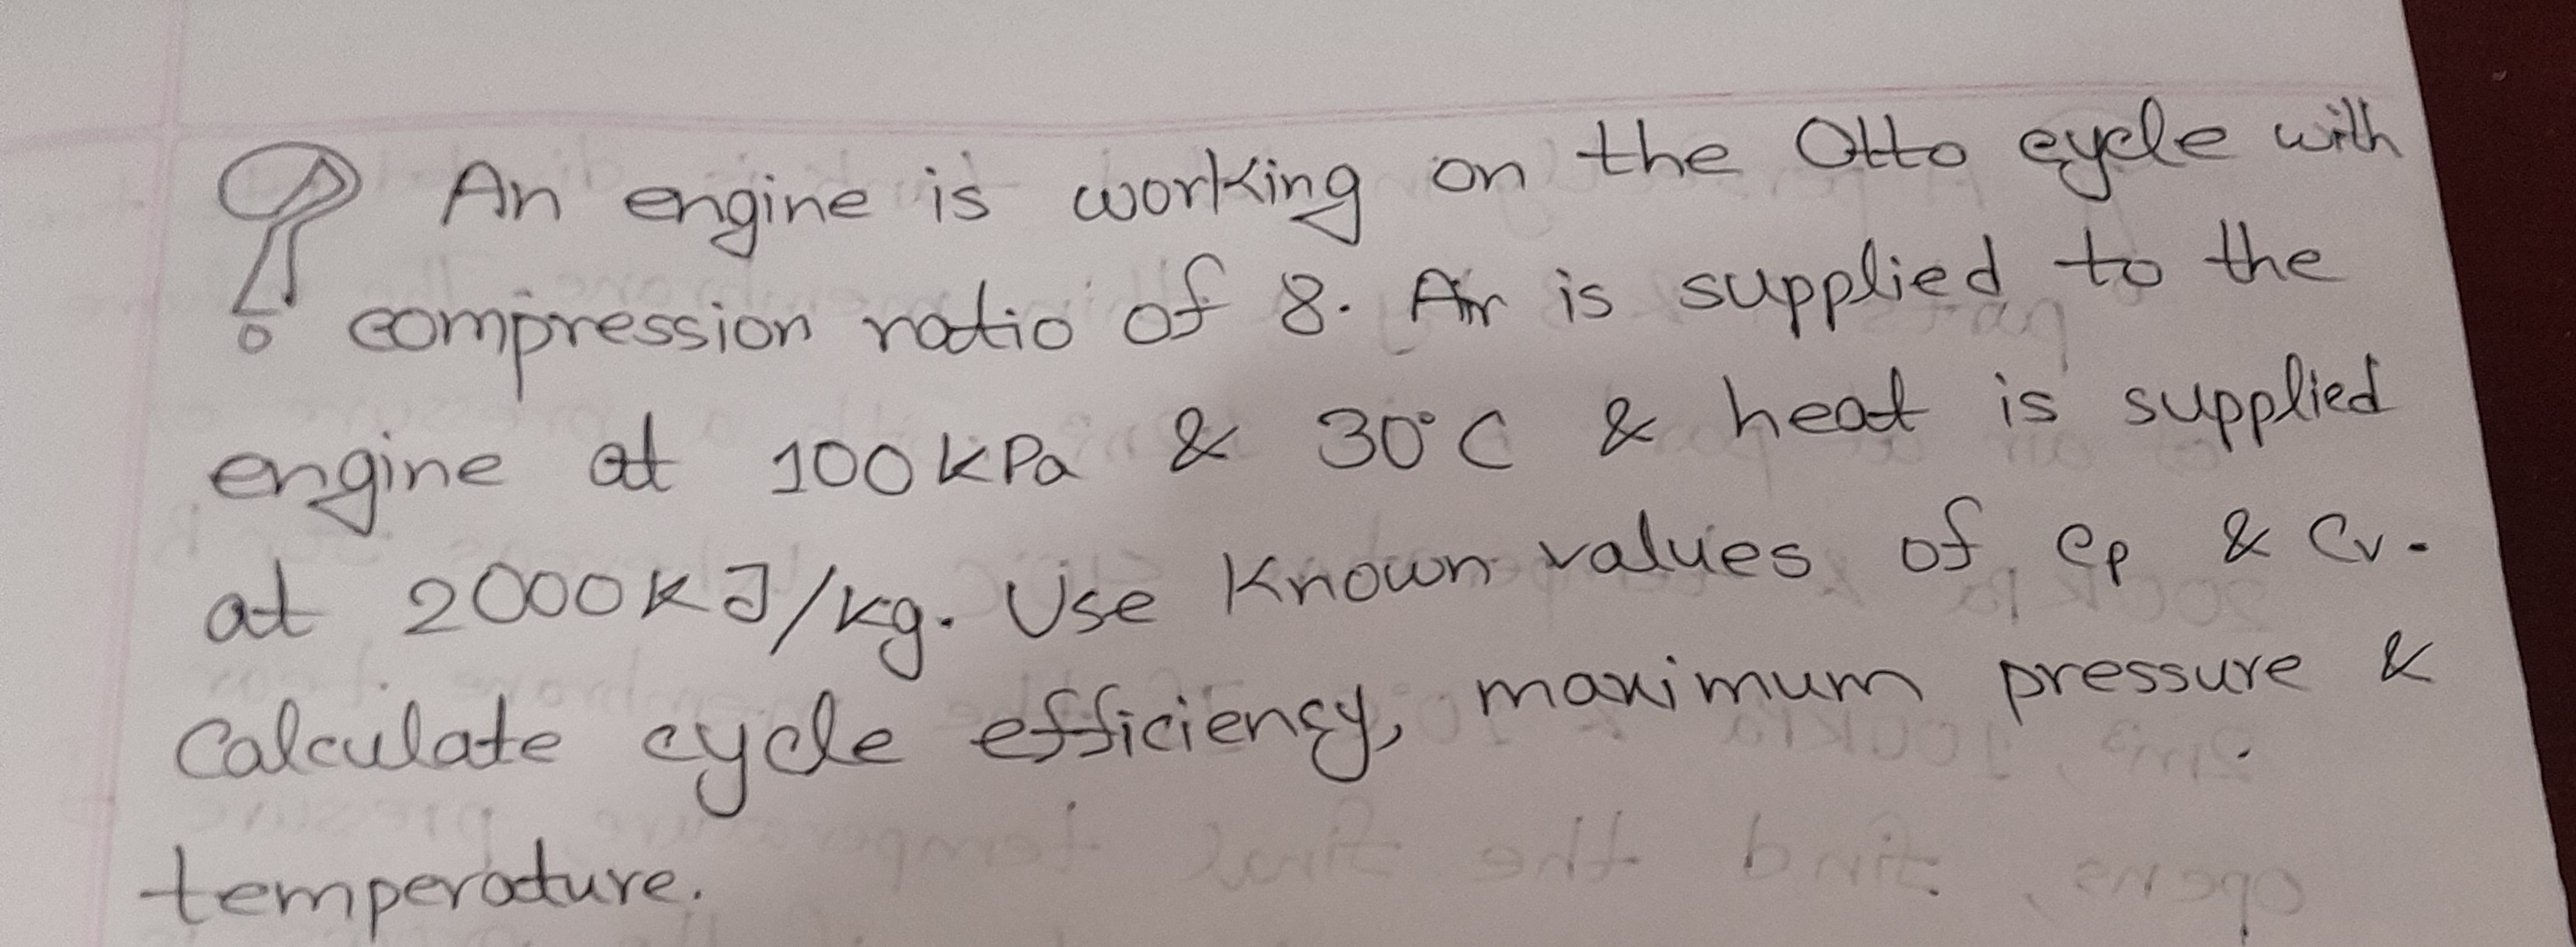 An engine is working on the Otto cycle with
compression ratio of 8. Air is supplied to the
engine at 100 kPa & 30°C & heat is supplied
at 2000 KJ/kg. Use Known values of Cp & Cv.
Calculate cycle efficiency, maximum pressure &
temperature.